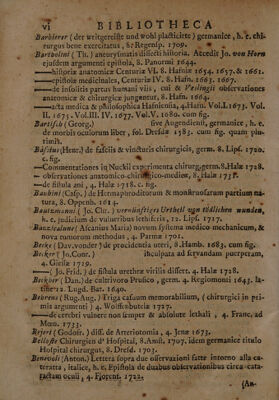 vi BIBLIOTHECA
Barbierer (der weitgereiste und wohl plassicirte) germanice, h. e. chirurgus bene exercitatus, 8. Regensp. 1709.
Bartholini (Th.) aneurysmatis dissecti historia. Accedit Jo. von Horn
ejusdem argumenti epistola, 8. Panormi 1644.
—historiæ anatomicæ Centuriæ VI. 8. Hafniæ 1654. 1657. & 1661.
—epistolæ medicinales, Centuriæ IV. 8. Hafn. 1663. 1667.
—de insolitis partus humani viis, cui & Veslingii observationes
anatomicæ & chirurgicæ junguntur, 8. Hafn. 1664.
—acta medica & philosophica Hafniensia, 4. Hafn. Vol. I. 1673. Vol.
II. 1675. Vol. III. IV. 1677. Vol. V. 1080. cum fig.
Bartisch (Georg.) sive Augendienst, germanice, h. e.
de morbis oculorum liber, fol. Dresdæ 1583. cum fig. quam plurimis.
Bass (Henr.) de fasciis & vincturis chirurgicis, germ. 8. Lips. 1720.
c. fig.
— Commentationes in Nuckii experimenta chirurg. germ. 8. Halæ 1728.
— observationes anatomico-chirurgico-medicæ, 8. Halæ
—de fistula ani, 4. Halæ 1718. c. fig.
Bauhini (Casp.) de Hermaphroditorum & monstruosarum partium natura, 8. Oppenh. 1614.
Bautzmanni (Jo. Chr.) vernünfftiges Urtheil von tödlichen wunden,
h. e. judicium de vulneribus lethiferis, 12. Lips. 1717.
(Ascanius Maria) novum systema medico-mechanicum, &
nova tumorum methodus, 4. Parmæ 1701.
(Dav. vonder) de procidentia uteri, 8. Hamb. 1683. cum fig.
Becker (Jo. Conr.) inculpata ad servandam puerperam,
4. Giessæ 1729.
— (Jo. Frid.) de fistula urethræ virilis dissert. 4. Halæ 1728.
(Dan.) de cultrivoro Prussico, germ. 4. Regiomonti 1643. latine 12. Lugd. Bat. 1640.
Behrens (Rug. Aug.) Triga casuum memorabilium, (chirurgici in primis argumenti) 4. Wolfferbuteiæ 1727.
—de cerebri vulnere non semper & absolute lethali, 4. Franc. ad
Mœn. 1733.
(Godofr.) diss. de Arteriotomia, 4. Jenæ 1673.
Belloste Chirurgien d' Hospital, 8. Amst. 1707. idem germanice titulo
Hospital chirurgus, 8. Dresd. 1703.
Benevoli (Anton.) Lettera sopra due osservazioni fatte intorno alla cateratta, italice, h. e. Epistola de duabus observationibus circa cataractam oculi, 4. Florent. 1722.
(An-